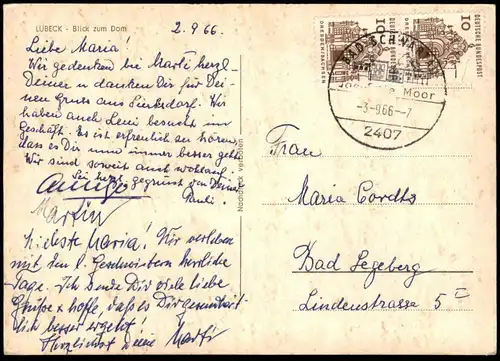 LÜBECK - Blick zum Dom
2.9.66.
Liebe Maria!
Wir gedenken bei Martl herzl.
Deiner u danken Dir für Dei-
nen Gruss aus . Wir
haben auch Leni besucht im
Geschäft. Es ist erfreulich zu hören,
dass es Dir nun immer besser geht
Wir sind soweit auch wohlauf.
Sei herzl. gegrüsst von Deiner
Pauli.
Martin
Liebste Maria! Wir verleben
mit den l. Geschwistern herrliche
Tage. Ich sende Dir viele liebe
Grüße & hoffe, daß es Dir gesundheit-
lich besser ergeht!
Herzlichst deine
Nachdruck verboten
DEUTSCHE BUNDESPOST
10
10
DRESDEN/SACHSEN
BAD SCHWARTAU
Moor
-3.-9.66--7
2407
Frau
Maria Cordts
Bad Segeberg
Lindenstrasse 5 I